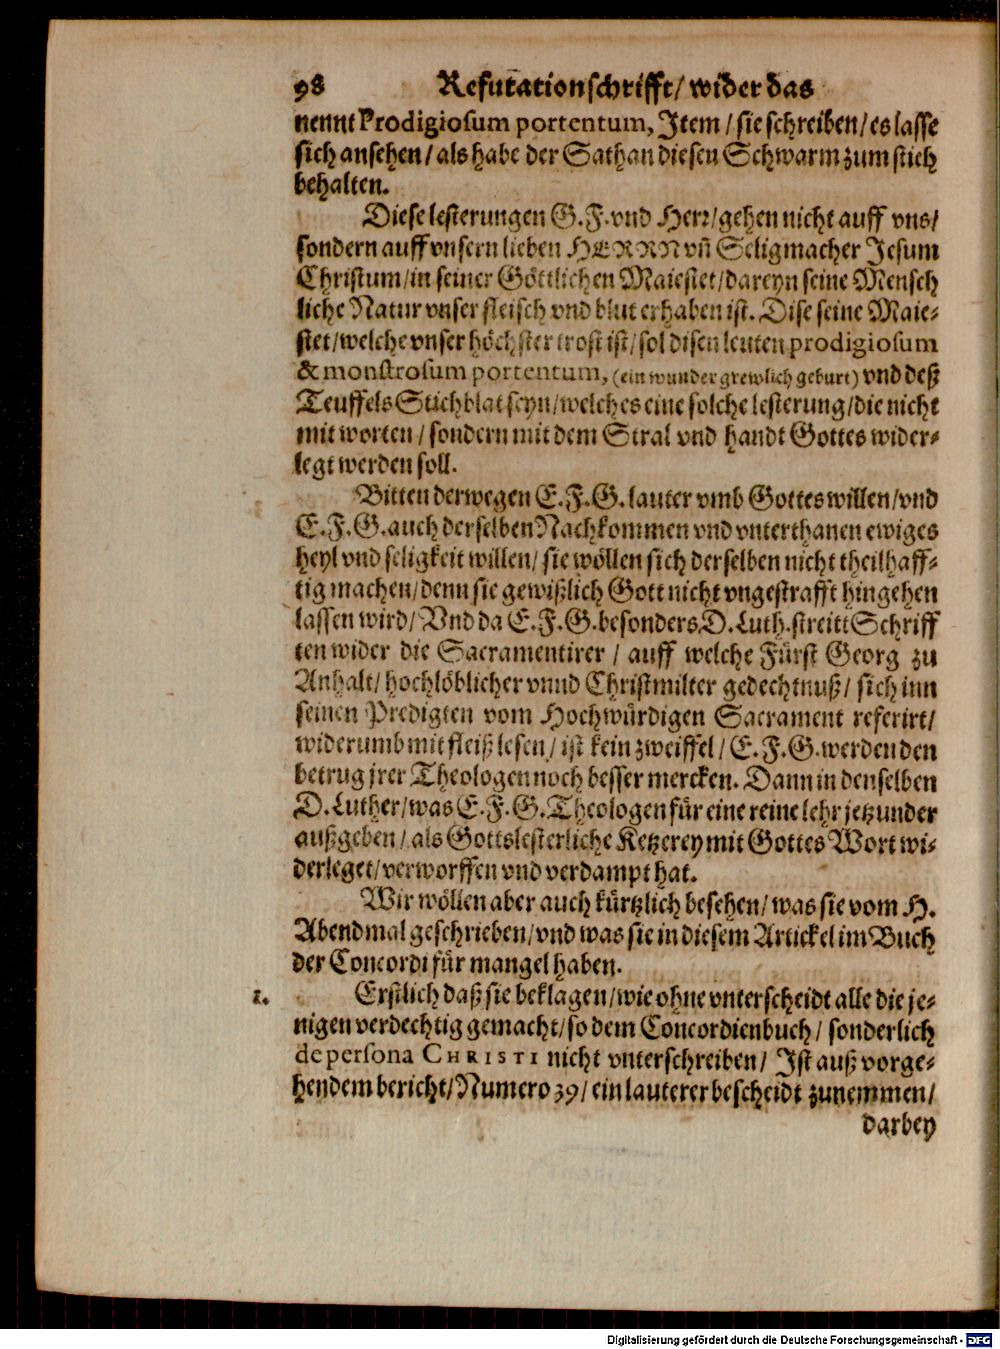 98 Refutationschrifft/ wider das
nennt Prodigiosum portentum, Item/ sie schreiben/ es lasse
sich ansehen/ als habe der Sathan diesen Schwarm zum stich
behalten.
Diese lesterungen G. F. vnd Herr/ gehen nicht auff vns/
sondern auff vnsern lieben HERRN vn̄ Seligmacher Jesum
Christum/ in seiner Göttlichen Maiestet/ dareyn seine Mensch
liche Natur vnser fleisch vnd blut erhaben ist. Dise seine Maie-
stet/ welche vnser höchster trost ist/ sol disen leuten prodigiosum
& monstrosum portentum, (ein wunder grewlich geburt) vnd deß
Teuffels Stichblat seyn/ welches eine solche lesterung/ die nicht
mit worten/ sondern mit dem Stral vnd handt Gottes wider-
legt werden soll.
Bitten derwegen E. F. G. lauter vmb Gottes willen/ vnd
E. F. G. auch derselben Nachkommen vnd vnterthanen ewiges
heyl vnd seligkeit willen/ sie wöllen sich derselben nicht theilhaff-
tig machen/ denn sie gewißlich Gott nicht vngestrafft hingehen
lassen wird/ Vnd da E. F. G. besonders, D. Luth. streitt Schriff
ten wider die Sacramentirer/ auff welche Fürst Georg zu
Anhalt/ hochlöblicher vnnd Christmilter gedechtnuß/ sich inn
seinen Predigten vom Hochwürdigen Sacrament referirt/
widerumb mit fleiß lesen/ ist kein zweiffel/ E. F. G. werden den
betrug jrer Theologen noch besser mercken. Dann in denselben
D. Luther/ was E. F. G. Theologen für eine reine lehr jetzunder
außgeben/ als Gottslesterliche Ketzerey mit Gottes Wort wi-
derleget/ verworffen vnd verdampt hat.
Wir wöllen aber auch kürtzlich besehen/ was sie vom H.
Abendmal geschrieben/ vnd was sie in diesem Artickel im Buch
der Concordi für mangel haben.
1. Erstlich daß sie beklagen/ wie ohne vnterscheidt alle die je-
nigen verdechtig gemacht/ so dem Concordienbuch/ sonderlich
de persona CHRISTI nicht vnterschreiben/ Ist auß vorge-
hendem bericht/ Numero 39/ ein lauterer bescheidt zunemmen/
darbey
Digitalisierung gefördert durch die Deutsche Forschungsgemeinschaft - DFG